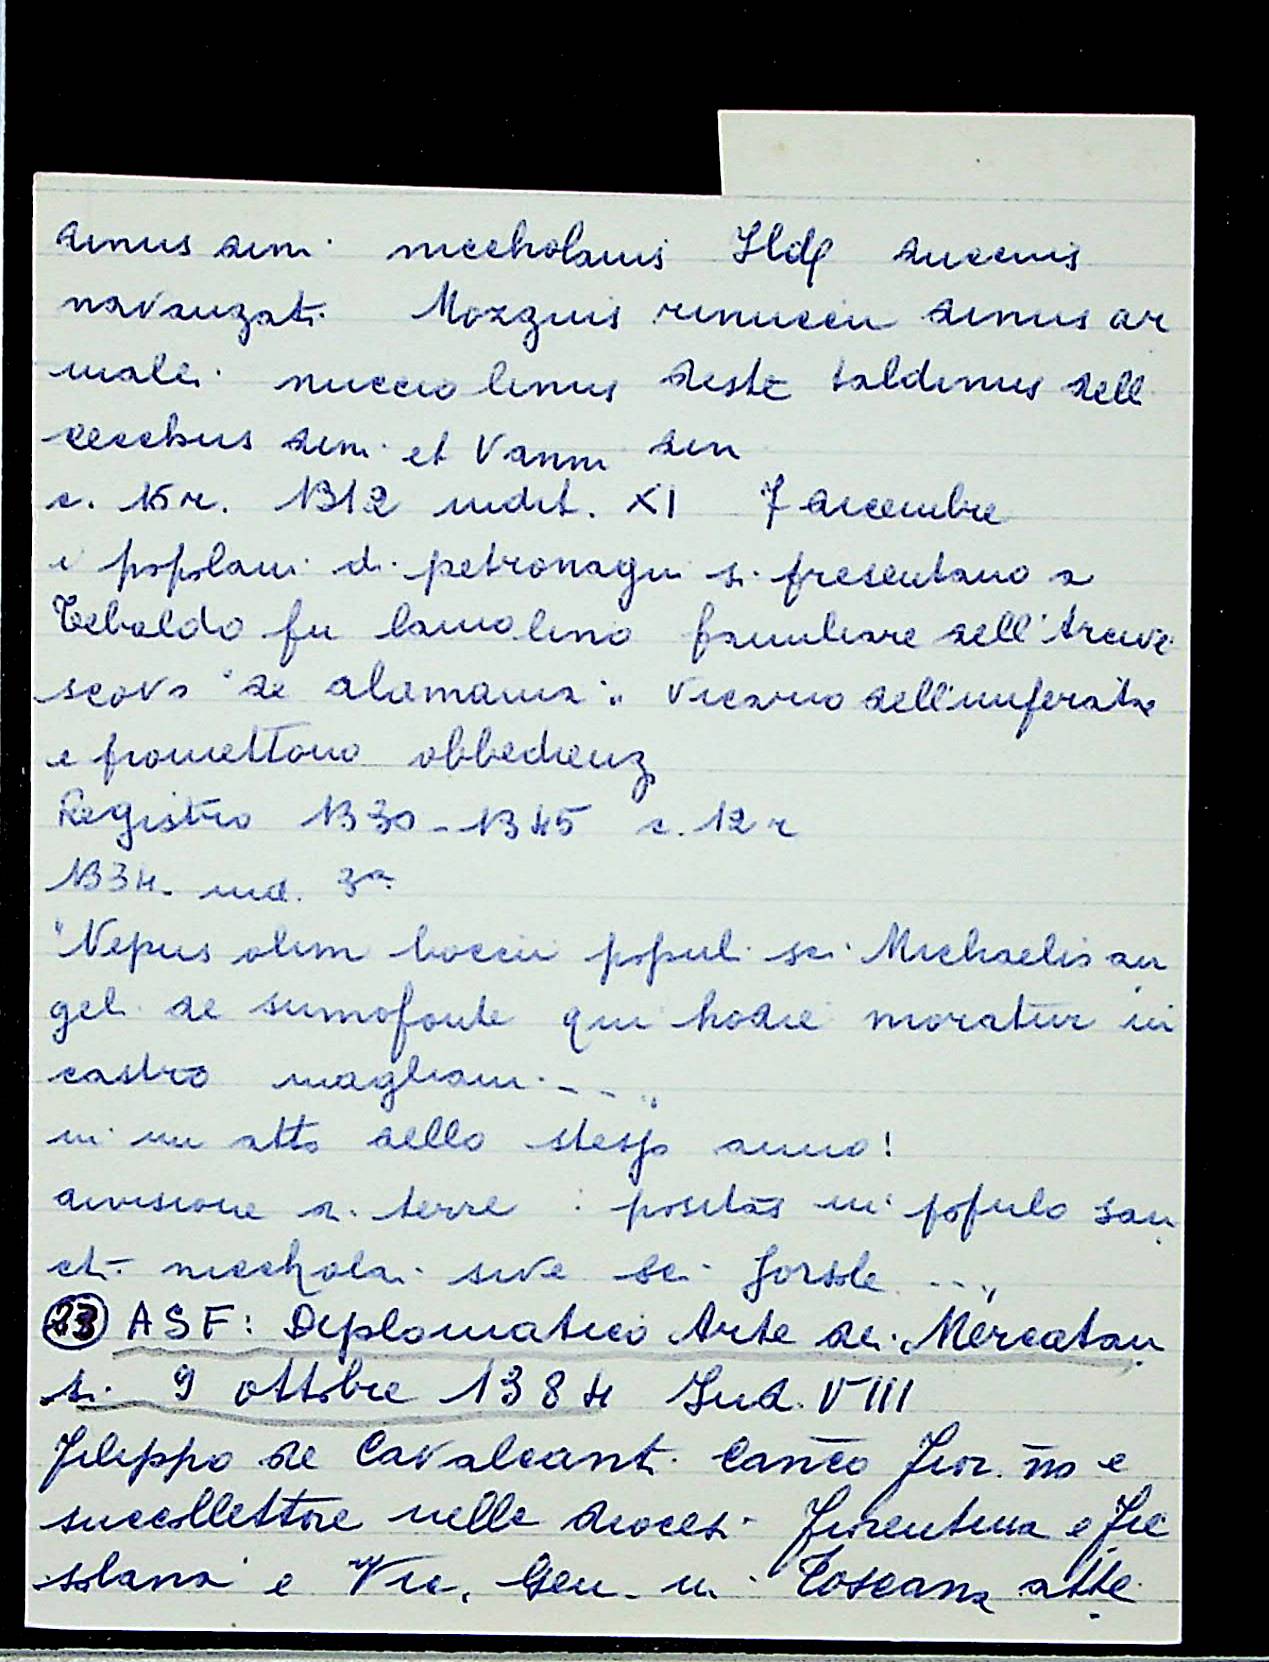 dinus dini niccholaus Ild. duccius
navanzati Mozzus rinuccii dinus ar
naldi nucciolinus teste taldinus dell
cecchus dini et Vanni din
c. 15r. 1312 indit. XI 7 dicembre
i popolani di petronagni si presentano a
Tebaldo fu lamolino familiare dell'Arcive
scovo "de alamania" Vicario dell'imperato
e promettono obbedienz
Registro 1330-1345 c. 12 r
1334. ind. 3a
"Nepus olim boccii populi sci Michaelis an
geli de sumofonte qui hodie moratur in
castro magliani..."
in un atto dello stesso anno!
divisione di terre: positas in populo san
cti niccholai sive sci Jorsole ..."
23 ASF: Diplomatico Arte dei Mercatan
ti. 9 ottobre 1384 Ind. VIII
Filippo de Cavalcanti Canco Fior. no e
succollettore nelle diocesi Fiorentina e Fie
solana e Vic. Gen. in Toscana atte